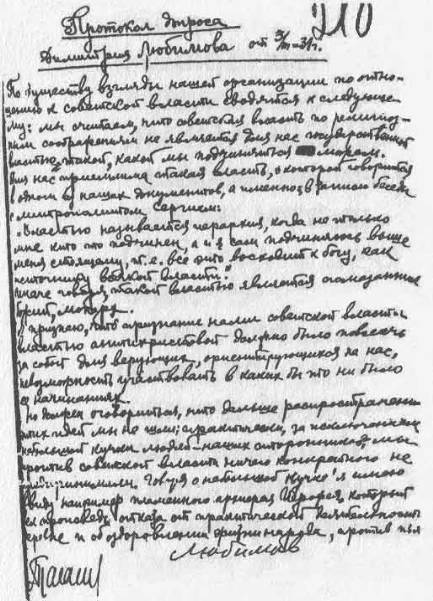 210
Протокол допроса
Димитрия Любимова от 3/III-31г.
По существу взгляды нашей организации по отно-
шению к советской власти сводятся к следующе-
му: мы считаем, что советская власть по религиоз-
ным соображениям не является для нас государственной
властью, такой, какой мы подчиняться можем.
Для нас приемлема такая власть, о которой говорится
в одном из наших документов, а именно в записи беседы
с митрополитом Сергием:
"Властью называется иерархия, когда не только
мне кто-то подчинен, а и я сам подчиняюсь выше
меня стоящему, т.е. все это восходит к богу, как
источнику всякой власти."
Иначе говоря, такой властью является помазанник
божий, монарх.
Я признаю, что признание нами советской власти
властью антихристовой должно было повлечь
за собой для верующих, ориентирующихся на нас,
невозможность участвовать в каких бы то ни было
ее начинаниях.
Но должен оговориться, что дальше распространения
этих идей мы не шли; практически, за исключением
небольшой кучки людей - наших сторонников, мы
против советской власти ничего конкретного не
предпринимали. Говоря о небольшой кучке я имею
ввиду например пламенного архиерея Иерофея, который
вел проповедь отказа от практической
и об оздоровлении жизни народа, против
Любимов